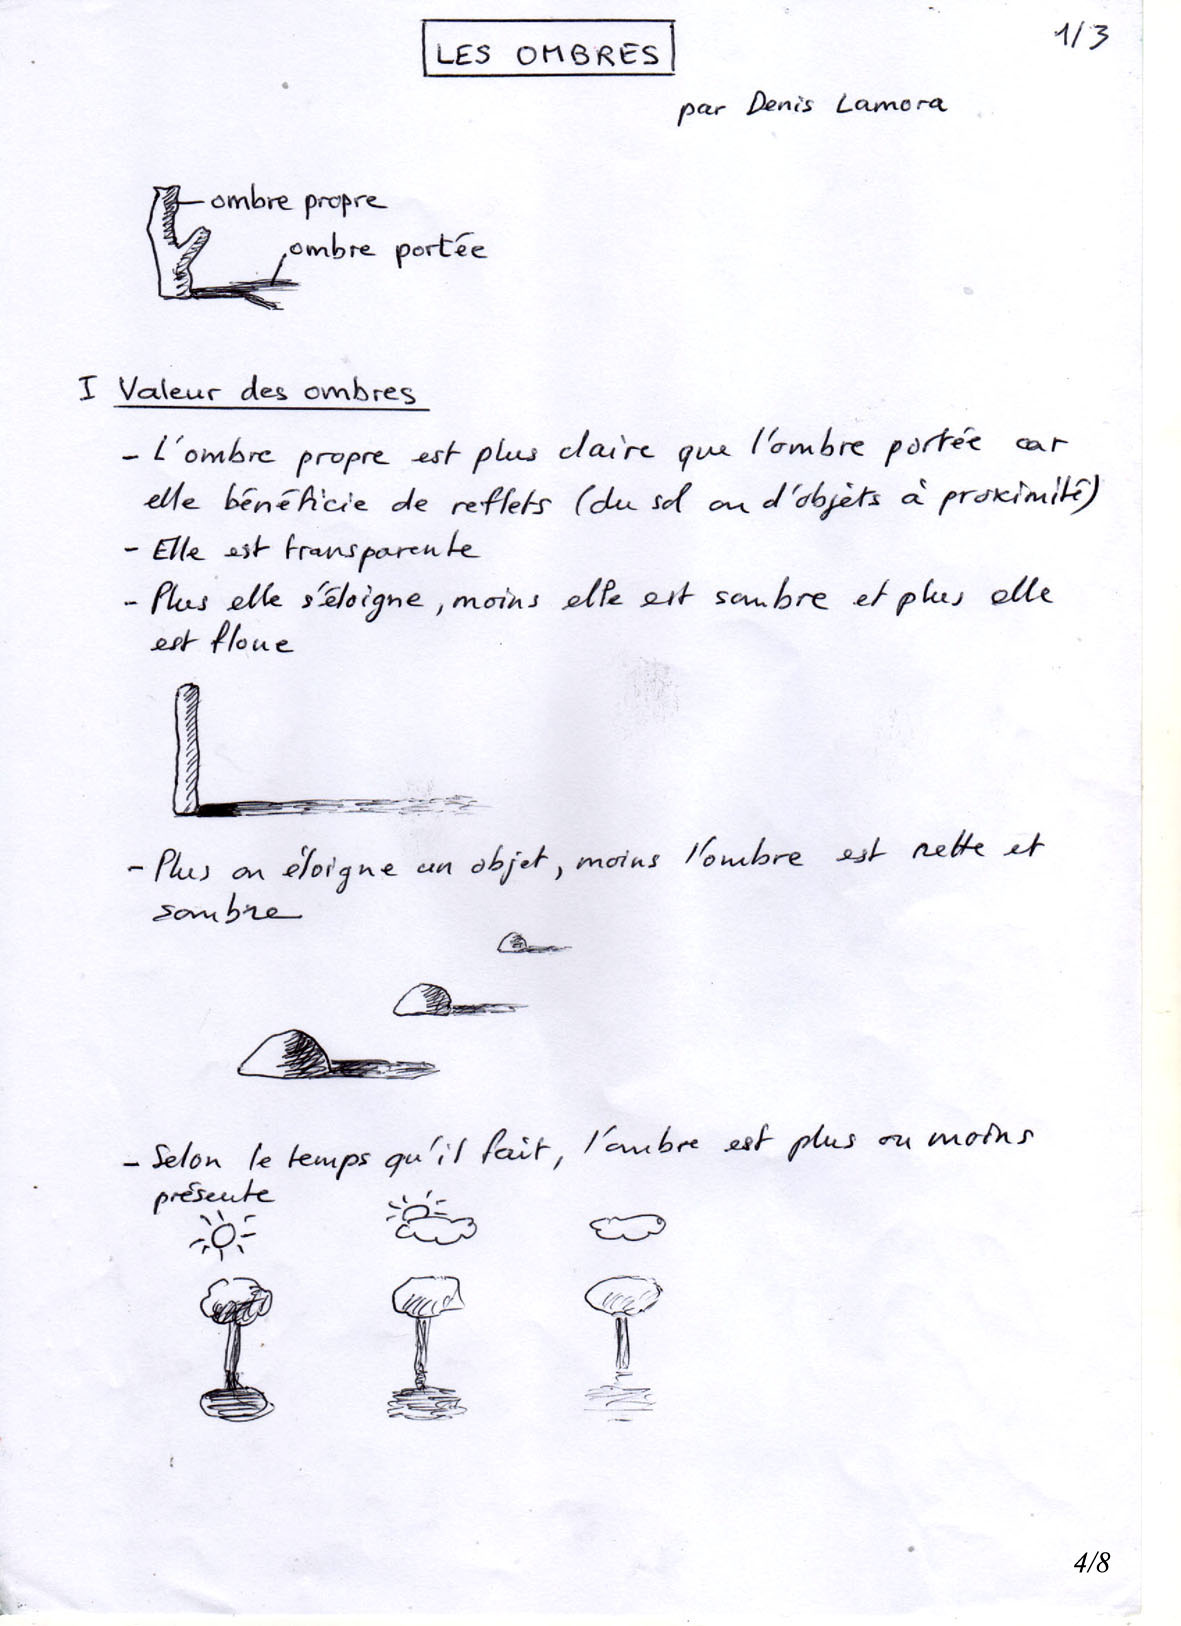 LES OMBRES
1/3
par Denis Lamora
ombre propre
ombre portée
I Valeur des ombres
- L'ombre propre est plus claire que l'ombre portée car
elle bénéficie de reflets (du sol ou d'objets à proximité)
- Elle est transparente
- Plus elle s'éloigne, moins elle est sombre et plus elle
est floue
- Plus on éloigne un objet, moins l'ombre est nette et
sombre
- Selon le temps qu'il fait, l'ombre est plus ou moins
présente
4/8